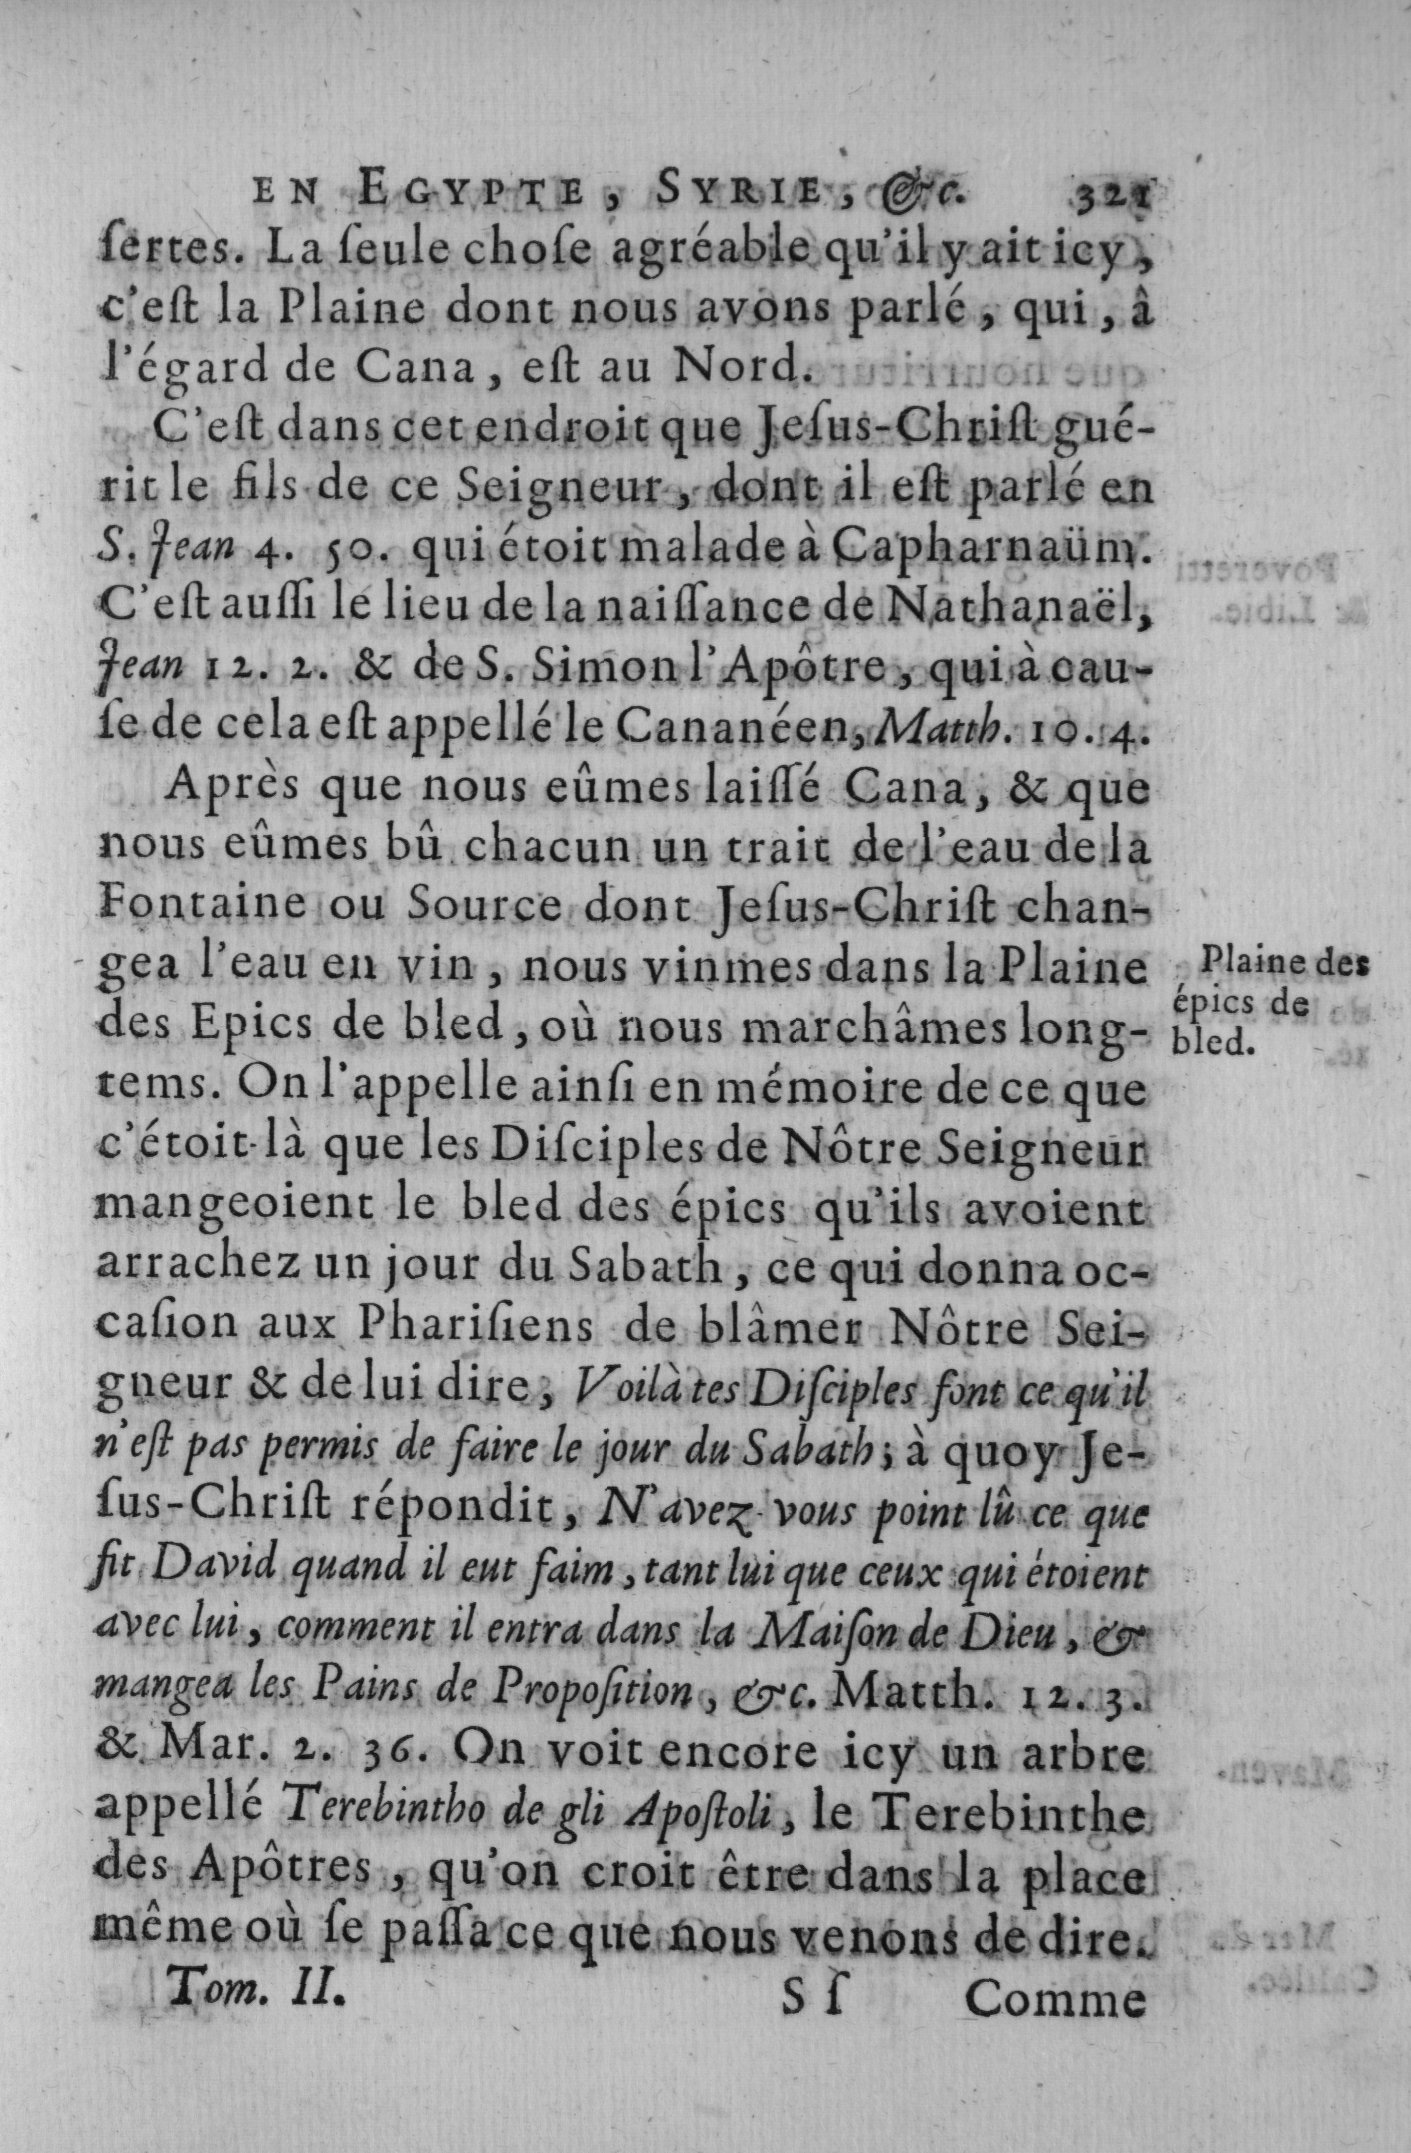 EN EGYPTE, SYRIE, &c. 321
ſertes. La ſeule choſe agréable qu'il y ait icy,
c'eſt la Plaine dont nous avons parlé, qui, â
l'égard de Cana, eſt au Nord.
C'eſt dans cet endroit que Jeſus-Chriſt gué-
rit le fils de ce Seigneur, dont il eſt parlé en
S. Jean 4. 50. qui étoit malade à Capharnaüm.
C'eſt auſſi le lieu de la naiſſance de Nathanaël,
Jean 12. 2. & de S. Simon l'Apôtre, qui à cau-
ſe de cela eſt appellé le Cananéen, Matth. 10. 4.
Après que nous eûmes laiſſé Cana, & que
nous eûmes bû chacun un trait de l'eau de la
Fontaine ou Source dont Jeſus-Chriſt chan-
gea l'eau en vin, nous vinmes dans la Plaine
des Epics de bled, où nous marchâmes long-
tems. On l'appelle ainſi en mémoire de ce que
c'étoit là que les Diſciples de Nôtre Seigneur
mangeoient le bled des épics qu'ils avoient
arrachez un jour du Sabath, ce qui donna oc-
caſion aux Phariſiens de blâmer Nôtre Sei-
gneur & de lui dire, Voilà tes Diſciples font ce qu'il
n'eſt pas permis de faire le jour du Sabath; à quoy Je-
ſus-Chriſt répondit, N'avez vous point lû ce que
fit David quand il eut faim, tant lui que ceux qui étoient
avec lui, comment il entra dans la Maiſon de Dieu, &
mangea les Pains de Propoſition, &c. Matth. 12. 3.
& Mar. 2. 36. On voit encore icy un arbre
appellé Terebintho de gli Apoſtoli, le Terebinthe
des Apôtres, qu'on croit être dans la place
même où ſe paſſa ce que nous venons de dire.
Tom. II. S ſ Comme
Plaine des
épics de
bled.